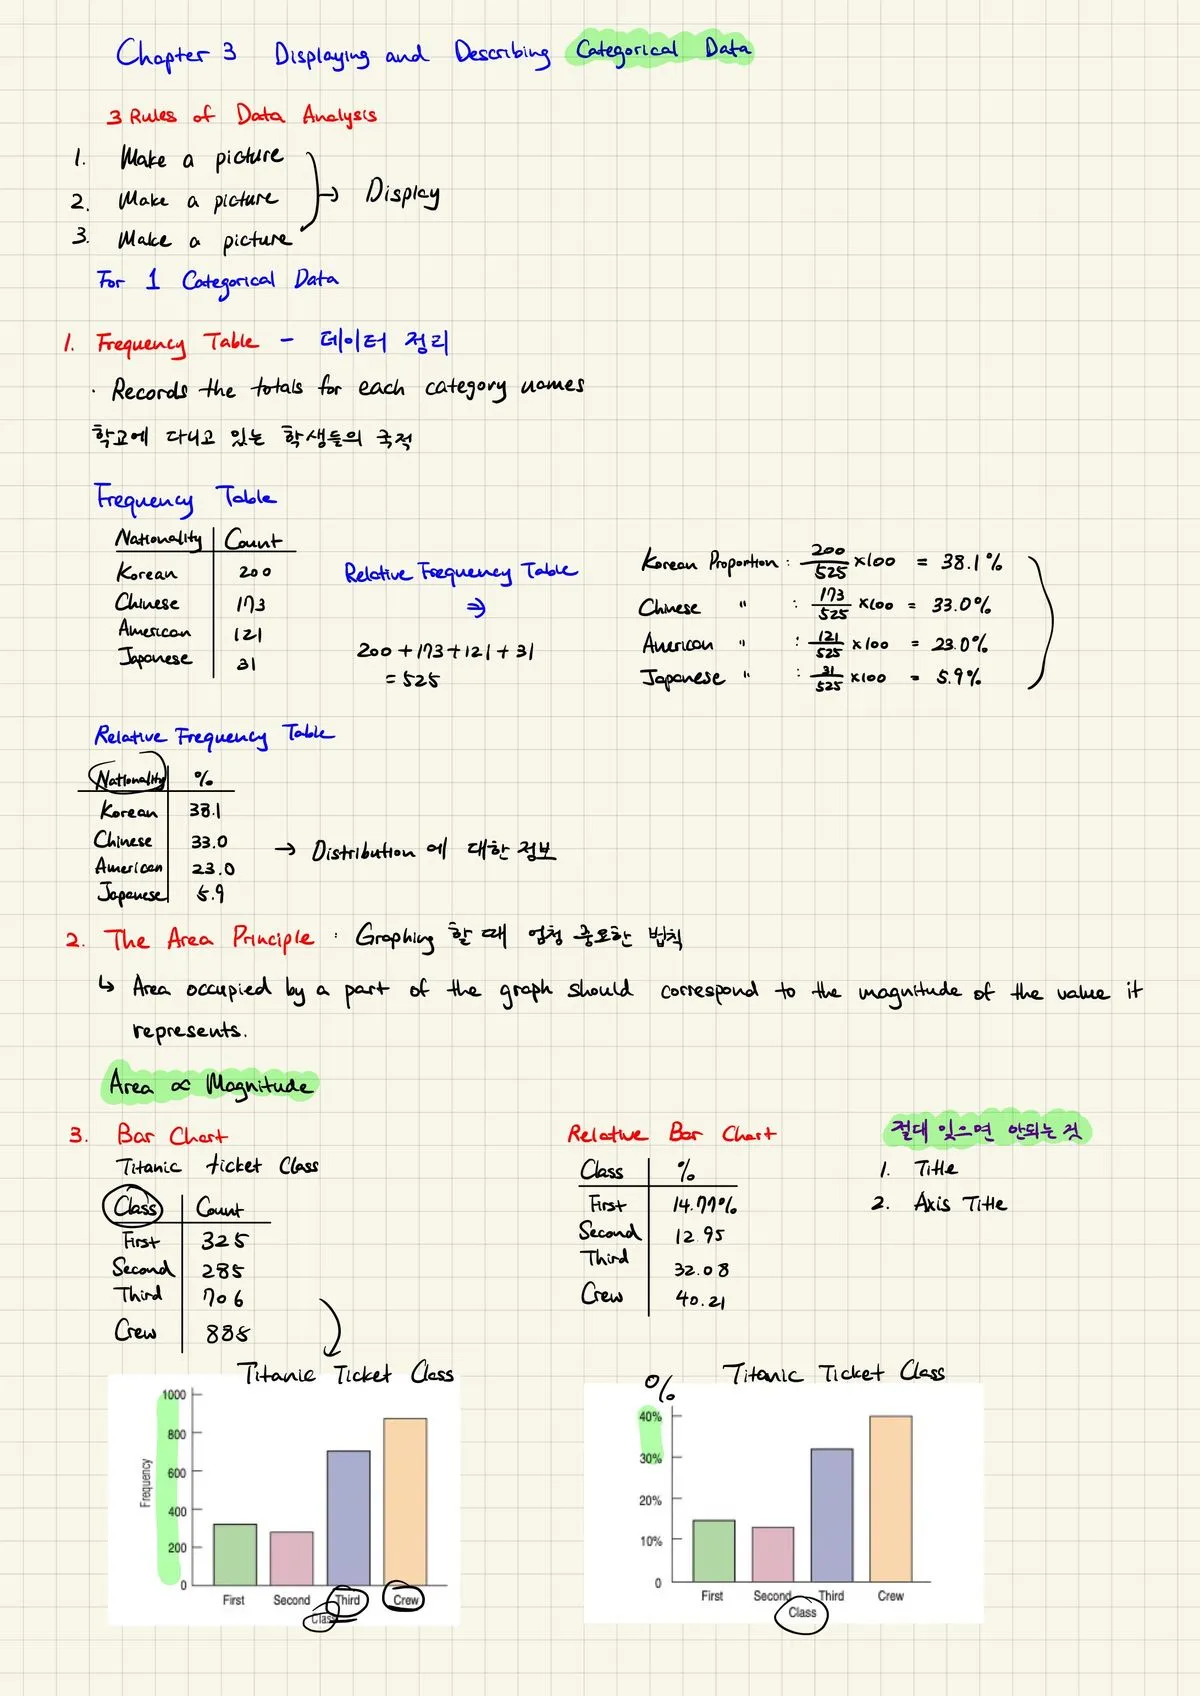 Chapter 3 Displaying and Describing Categorical Data
3 Rules of Data Analysis
1. Make a picture
2. Make a picture
3. Make a picture
→ Display
For 1 Categorical Data
1. Frequency Table - 데이터 정리
· Records the totals for each category names
학교에 다니고 있는 학생들의 국적
Frequency Table
Nationality Count
Korean 200
Chinese 173
American 121
Japanese 31
Relative Frequency Table
⇒
200+173+121+31
= 525
Korean Proportion : 200/525 ×100 = 38.1%
Chinese " : 173/525 ×100 = 33.0%
American " : 121/525 ×100 = 23.0%
Japanese " : 31/525 ×100 = 5.9%
Relative Frequency Table
Nationality %
Korean 38.1
Chinese 33.0
American 23.0
Japanese 5.9
→ Distribution 에 대한 정보
2. The Area Principle : Graphing 할 때 엄청 중요한 법칙
↳ Area occupied by a part of the graph should correspond to the magnitude of the value it
represents.
Area ∝ Magnitude
3. Bar Chart
Titanic ticket Class
Class Count
First 325
Second 285
Third 706
Crew 885
Relative Bar Chart
Class %
First 14.77%
Second 12.95
Third 32.08
Crew 40.21
절대 잊으면 안되는 것
1. Title
2. Axis Title
Titanic Ticket Class
1000
800
600
400
200
0
Frequency
First Second Third Crew
Class
Titanic Ticket Class
%
40%
30%
20%
10%
0
First Second Third Crew
Class